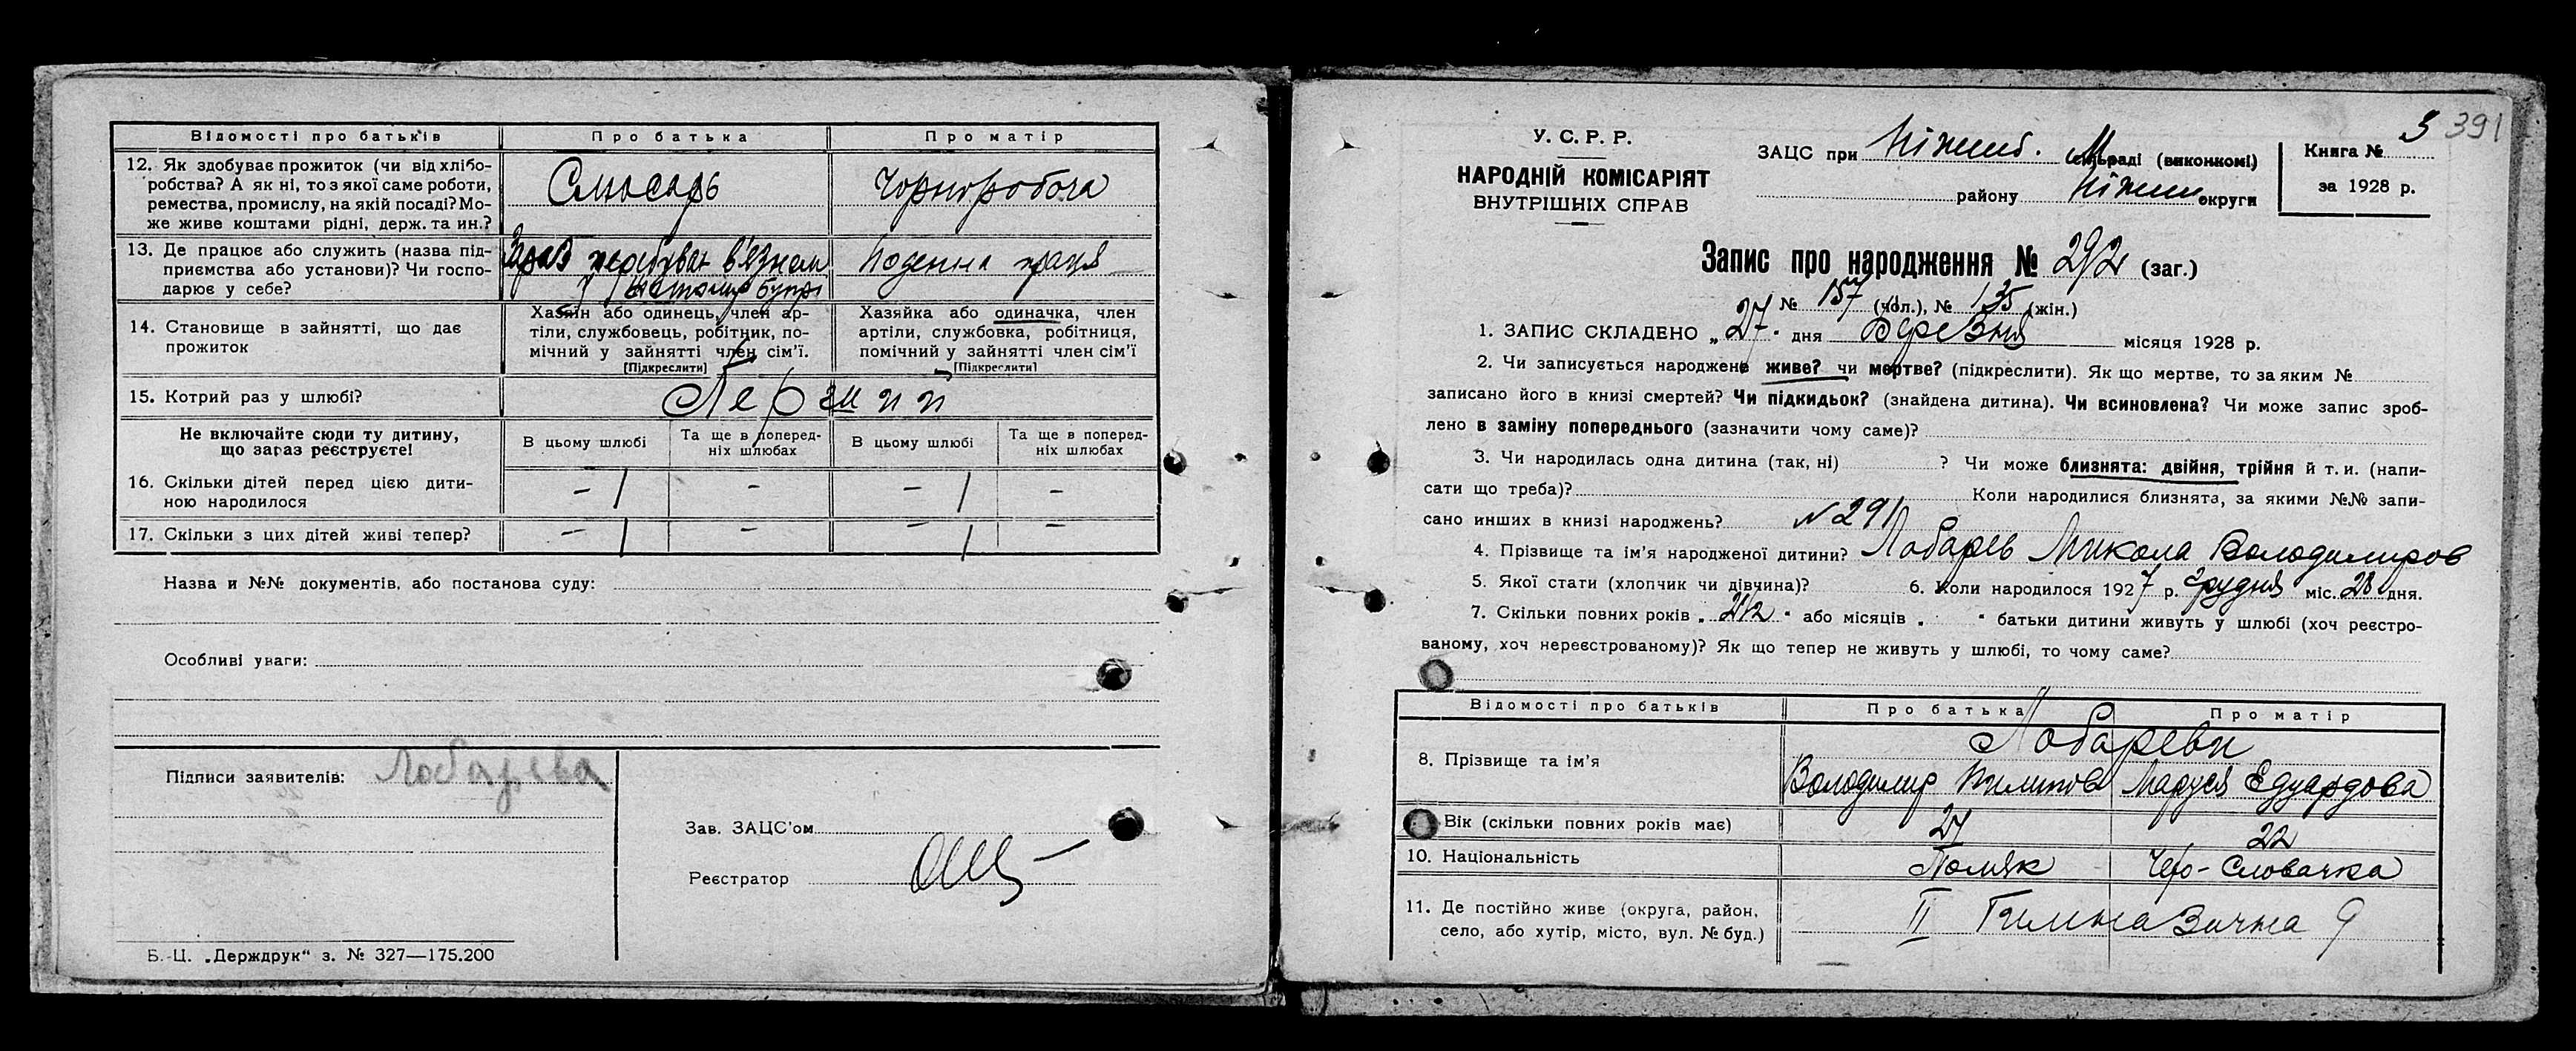 Відомості про батьків Про батька Про матір
12. Як здобуває прожиток (чи від хлібо-
робства? А як ні, то з якої саме роботи,
ремества, промислу, на якій посаді? Мо-
же живе коштами рідні, держ. та ин.?
Слюсарь Чорноробоча
13. Де працює або служить (назва під-
приємства або установи)? Чи госпо-
дарює у себе?
Зараз перебуває в'язнем
Поденна праця
14. Становище в зайнятті, що дає
прожиток
Хазяїн або одинець, член ар-
тіли, службовець, робітник, по-
мічний у зайнятті член сім'ї.
[Підкреслити]
Хазяйка або одиначка, член
артіли, службовка, робітниця,
помічний у зайнятті член сім'ї
[Підкреслити]
15. Котрий раз у шлюбі? Перший
Не включайте сюди ту дитину,
що зараз реєструєте!
В цьому шлюбі Та ще в поперед-
ніх шлюбах В цьому шлюбі Та ще в поперед-
ніх шлюбах
16. Скільки дітей перед цією дити-
ною народилося
– 1 – – 1 –
17. Скільки з цих дітей живі тепер? – 1 – – 1 –
Назва и №№ документів, або постанова суду:
Особливі уваги:
Підписи заявителів: Лобарева
Зав. ЗАЦС'ом
Реєстратор
Б.-Ц. „Держдрук“ з. № 327—175.200
3 391
У. С. Р. Р.
НАРОДНІЙ КОМІСАРІЯТ
ВНУТРІШНІХ СПРАВ
ЗАЦС при Ніжинс. М раді (виконкомі)
району Ніжин округи
Книга №
за 1928 р.
Запис про народження № 292 (заг.)
№ 157 (чол.), № 135 (жін.)
1. ЗАПИС СКЛАДЕНО „27“ дня Березня місяця 1928 р.
2. Чи записується народжене живе? чи мертве? (підкреслити). Як що мертве, то за яким №
записано його в книзі смертей? Чи підкидьок? (знайдена дитина). Чи всиновлена? Чи може запис зроб-
лено в заміну попереднього (зазначити чому саме)?
3. Чи народилась одна дитина (так, ні) ? Чи може близнята: двійня, трійня й т. и. (напи-
сати що треба)? Коли народилися близнята, за якими №№ запи-
сано инших в книзі народжень? № 291
4. Прізвище та ім'я народженої дитини? Лобарев Микола Володимиров
5. Якої стати (хлопчик чи дівчина)? 6. Коли народилося 1927 р. Грудня міс. 28 дня.
7. Скільки повних років „ 2½ “ або місяців „ “ батьки дитини живуть у шлюбі (хоч реєстро-
ваному, хоч нереєстрованому)? Як що тепер не живуть у шлюбі, то чому саме?
Відомості про батьків Про батька Про матір
Лобареви
8. Прізвище та ім'я Володимир Пилипов Маруся Едуардова
Вік (скільки повних років має) 27 22
10. Національність Поляк Чехо-Словачка
11. Де постійно живе (округа, район,
село, або хутір, місто, вул. № буд.)
II 9